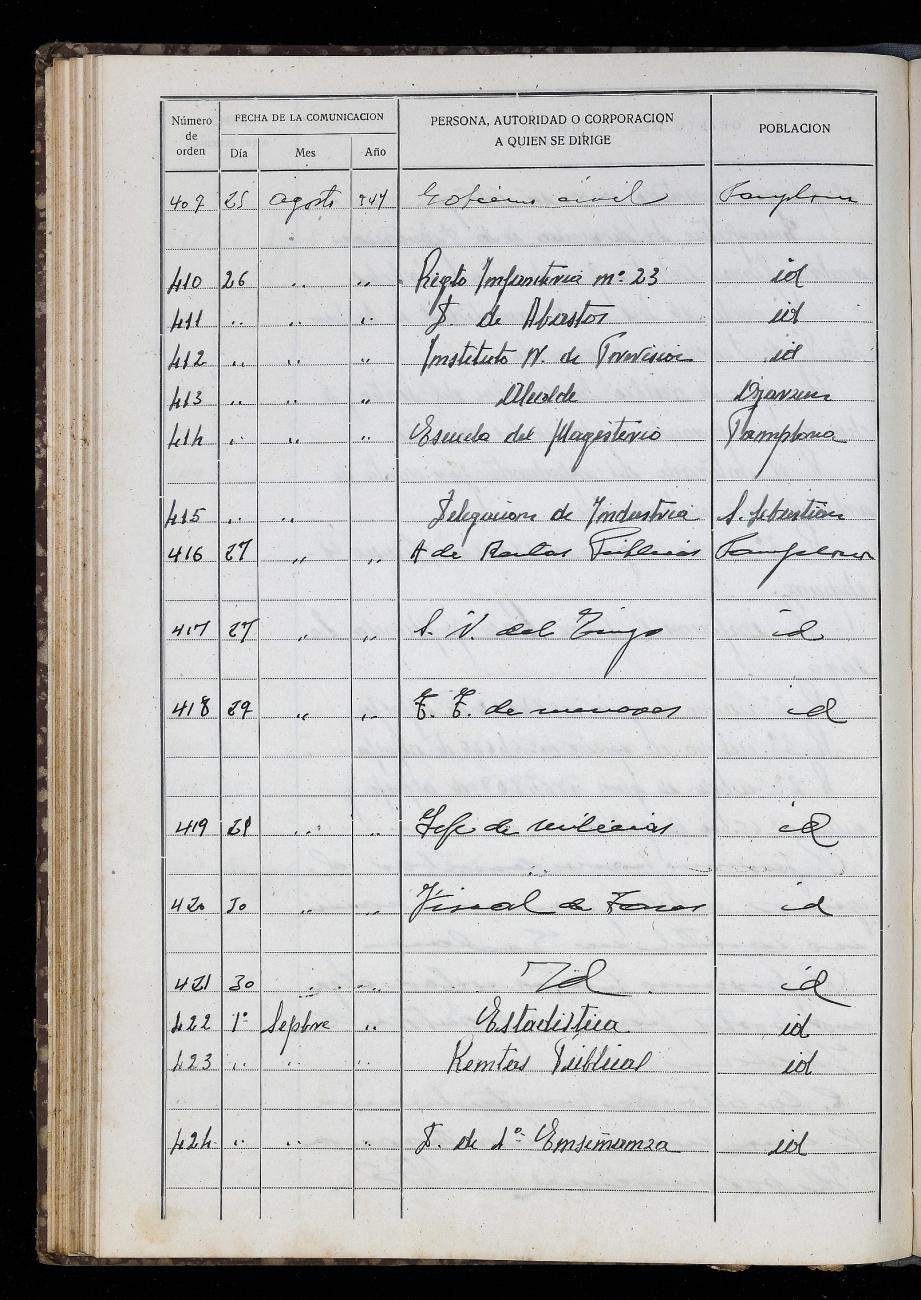 Número de orden FECHA DE LA COMUNICACION PERSONA, AUTORIDAD O CORPORACION A QUIEN SE DIRIGE POBLACION
Día Mes Año
409 25 agosto 947 Gobierno civil Pamplona
410 26 " " Regto Infanteria nº 23 id
411 " " " D. de Abastos id
412 " " " Instituto N. de Prevision id
413 " " " Alcalde Oyarzun
414 " " " Escuela del Magisterio Pamplona
415 " " Delegacion de Industria S. Sebastian
416 27 " " A de Rentas Publicas Pamplona
417 27 " " S. N. del Trigo id
418 29 " " T. T. de menores id
419 29 " " Jefe de milicias id
420 30 " " Fiscal de Tasas id
421 30 " " Id id
422 1º Septbre " Estadistica id
423 " " " Rentas Públicas id
424 " " " D. de 1ª Enseñanza id